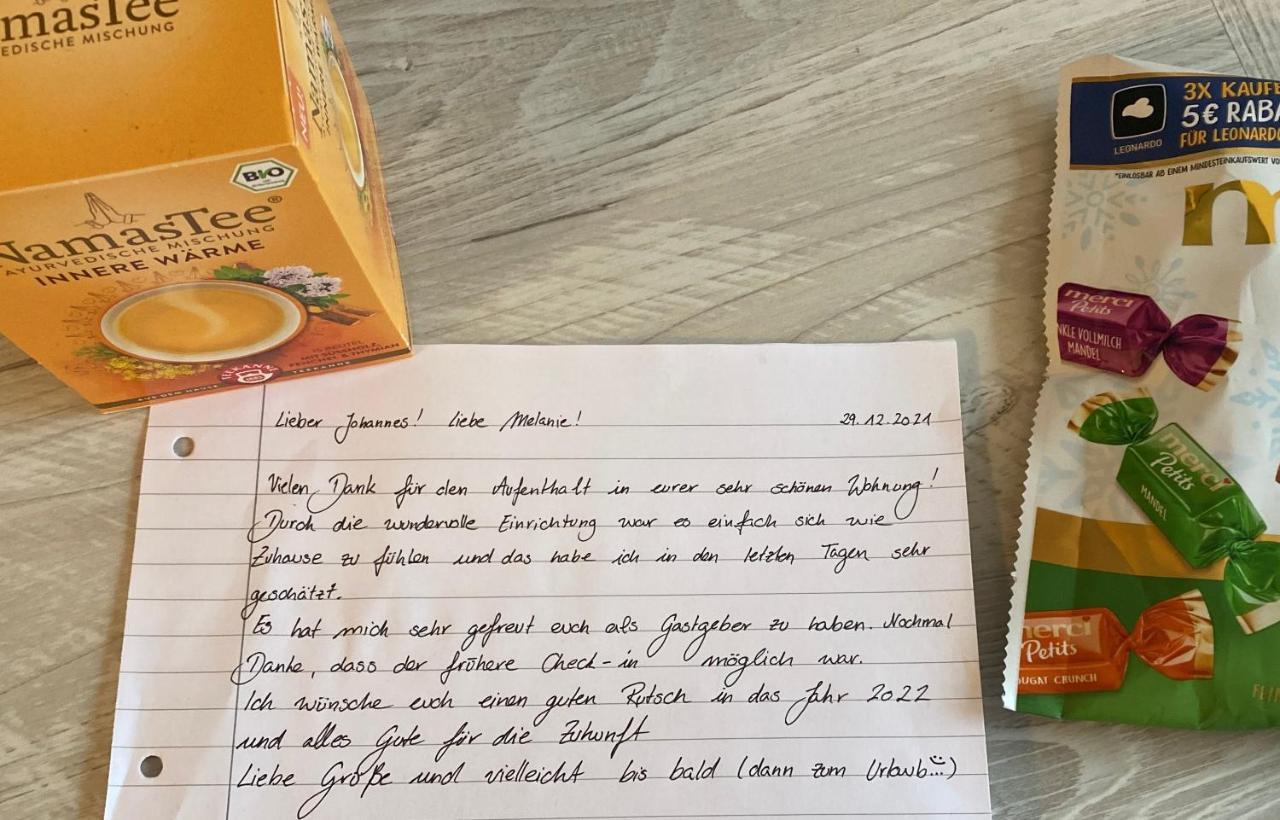 masTee
EDISCHE MISCHUNG
NEU!
BIO
NamasTee®
AYURVEDISCHE MISCHUNG
INNERE WÄRME
15 BEUTEL
MIT SÜSSHOLZ,
FENCHEL & THYMIAN
TEEKANNE
AUS DEM HAUSE TEEKANNE
3X KAUFE
5€ RABA
FÜR LEONARDO
LEONARDO
*EINLÖSBAR AB EINEM MINDESTEINKAUFSWERT VO
m
merci
Petits
NKLE VOLLMILCH
MANDEL
merci
Petits
MANDEL
merci
Petits
OUGAT CRUNCH
FEI
Lieber Johannes! Liebe Melanie! 29.12.2021
Vielen Dank für den Aufenthalt in eurer sehr schönen Wohnung!
Durch die wundervolle Einrichtung war es einfach sich wie
Zuhause zu fühlen und das habe ich in den letzten Tagen sehr
geschätzt.
Es hat mich sehr gefreut euch als Gastgeber zu haben. Nochmal
Danke, dass der frühere Check-in möglich war.
Ich wünsche euch einen guten Rutsch in das Jahr 2022
und alles Gute für die Zukunft
Liebe Grüße und vielleicht bis bald (dann zum Urlaub...)